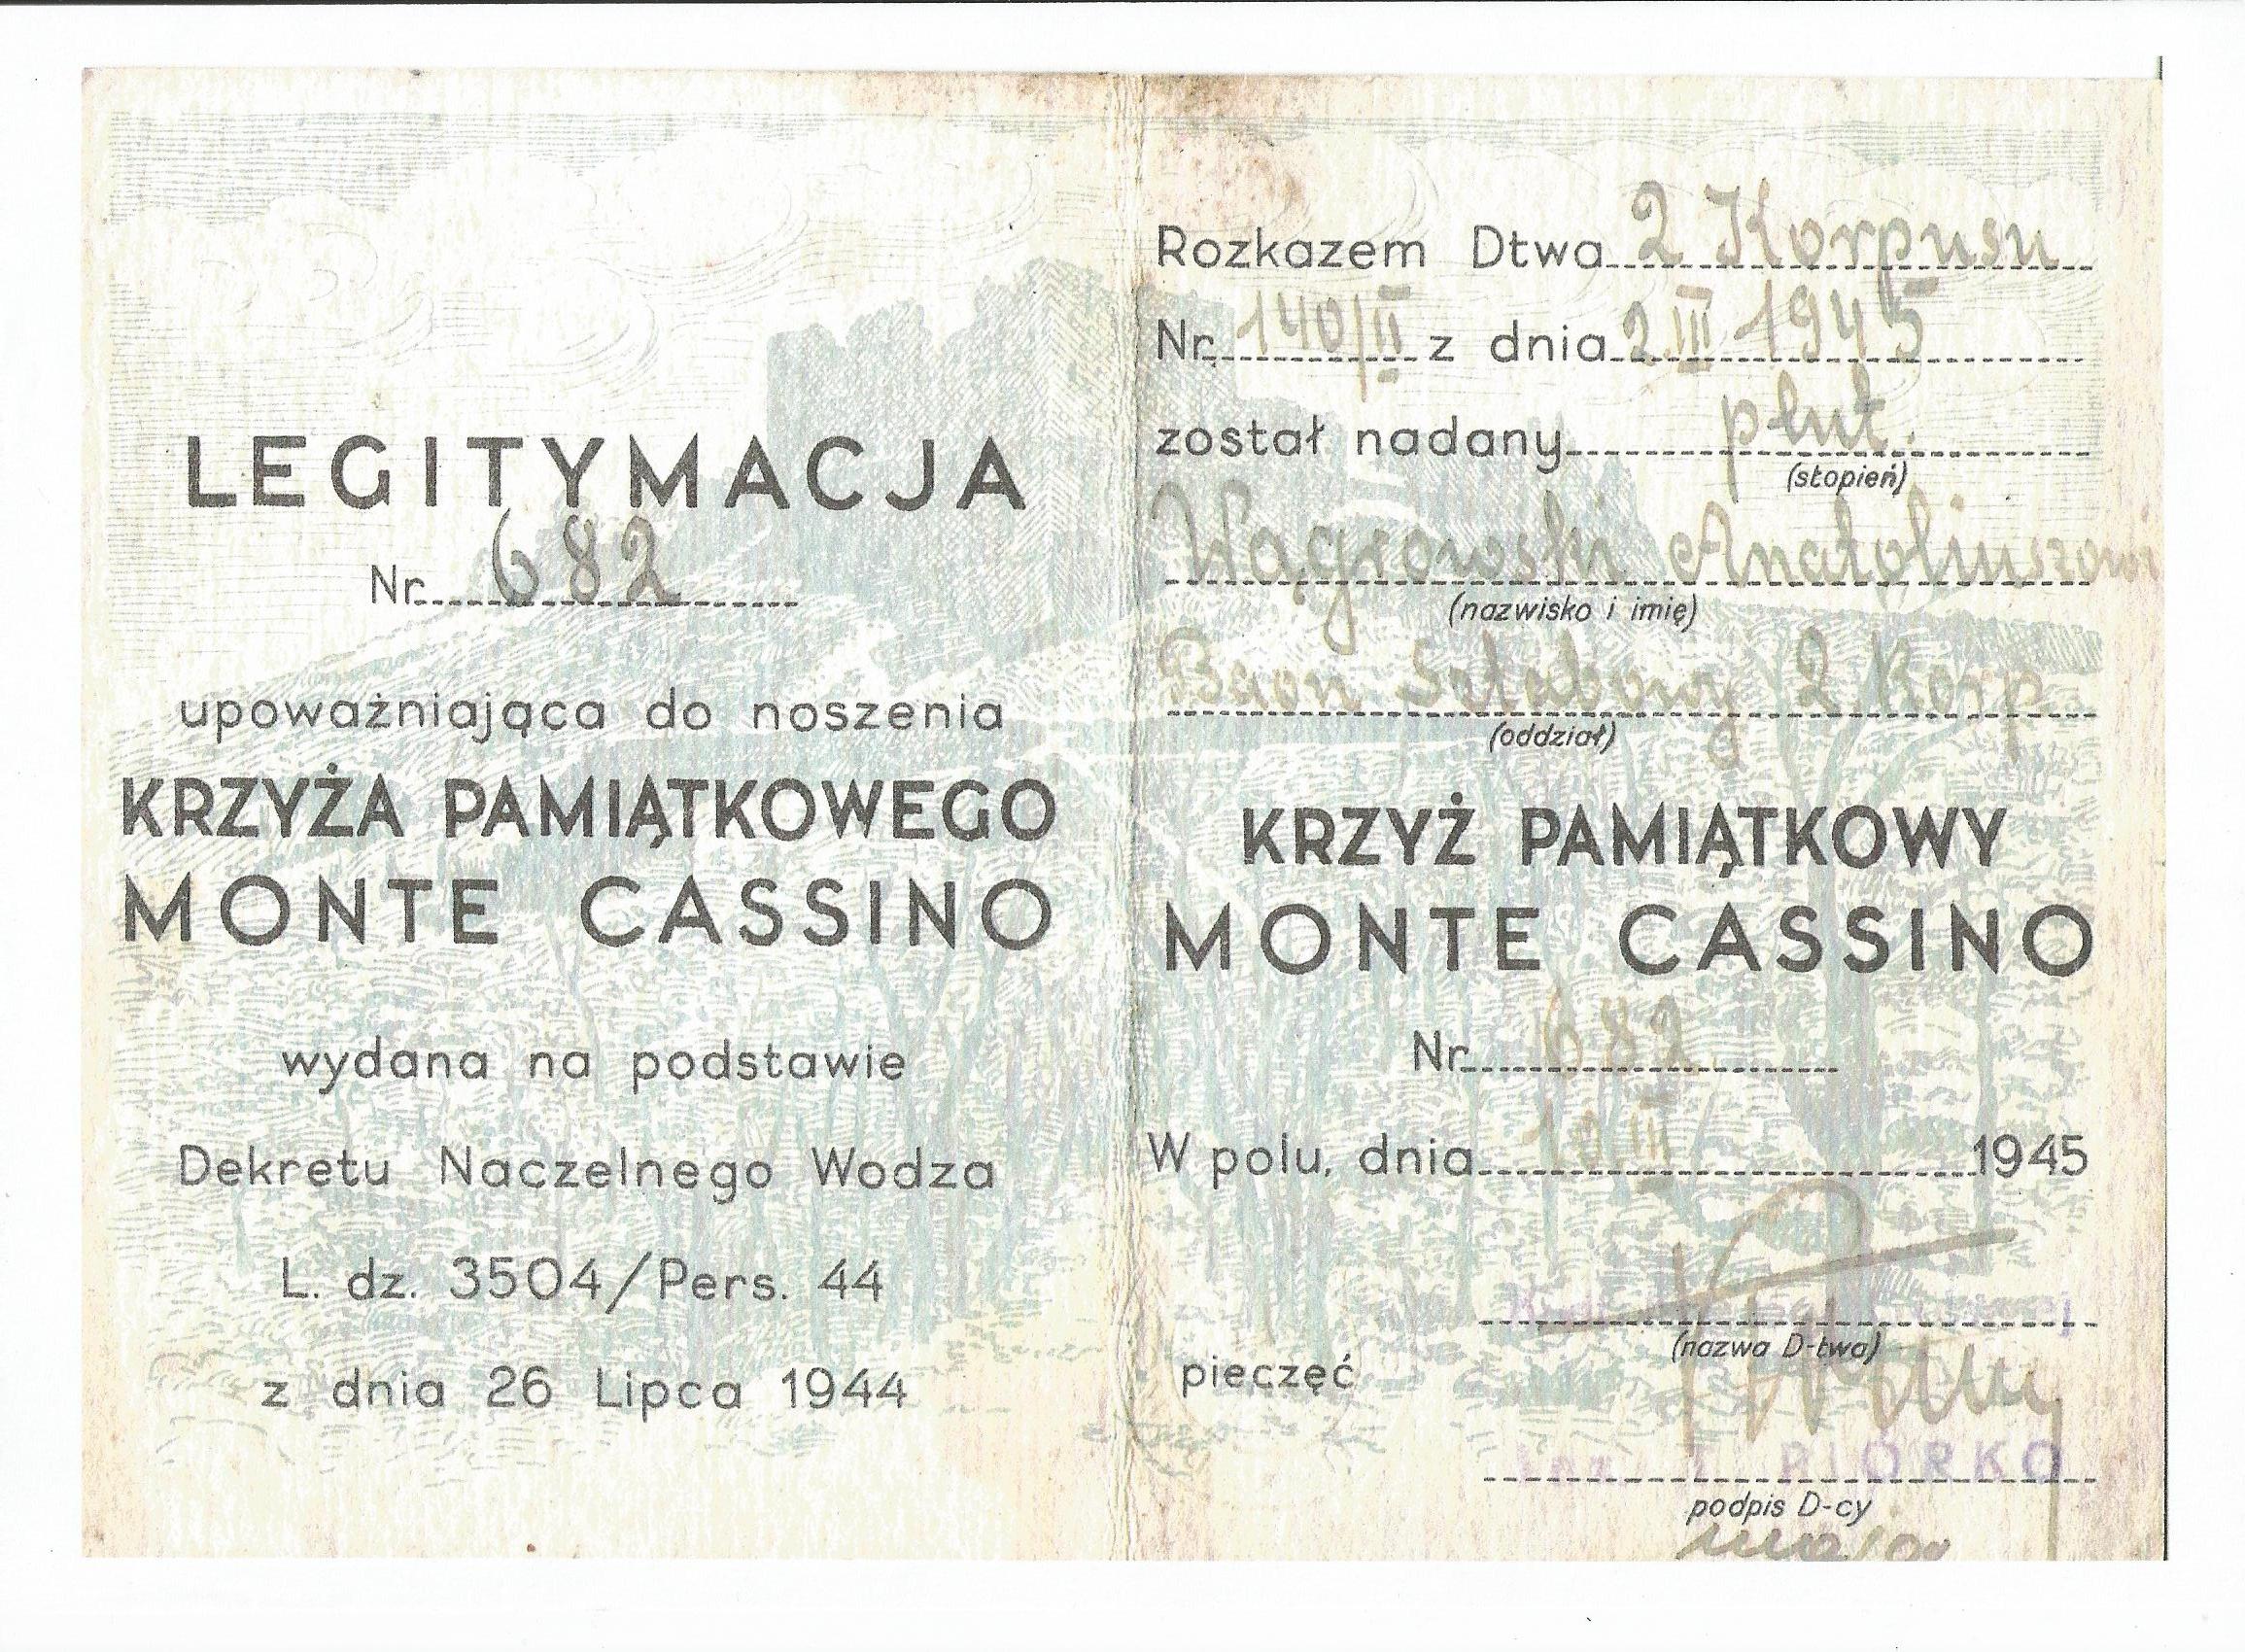 LEGITYMACJA
Nr. 682
upoważniająca do noszenia
KRZYŻA PAMIĄTKOWEGO
MONTE CASSINO
wydana na podstawie
Dekretu Naczelnego Wodza
L. dz. 3504/Pers. 44
z dnia 26 Lipca 1944
Rozkazem Dtwa 2 Korpusu
Nr. 140/II z dnia 2 III 1945
został nadany plut.
(stopień)
Wągrowski Anatoliuszowi
(nazwisko i imię)
Baon Sztabowy 2 Korp.
(oddział)
KRZYŻ PAMIĄTKOWY
MONTE CASSINO
Nr. 682
W polu, dnia 10 III 1945
(nazwa D-twa)
pieczęć
PIÓRKO
podpis D-cy
major